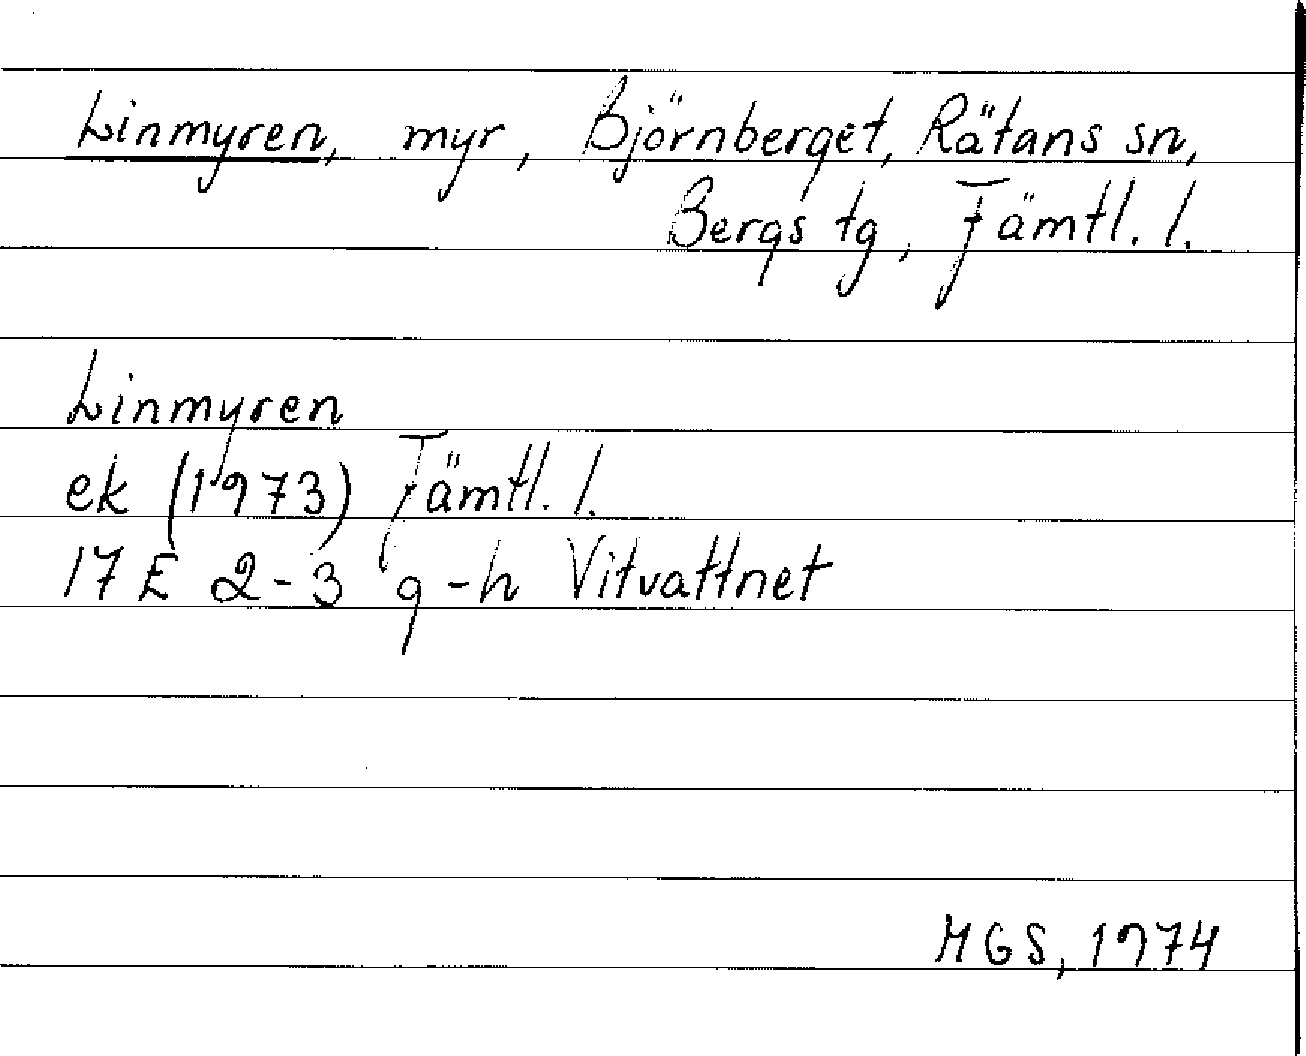 Linmyren, myr, Björnberget, Rätans sn,
Bergs tg, Jämtl. l.
Linmyren
ek (1973) Jämtl. l.
17 E 2-3 g-h Vitvattnet
MGS, 1974